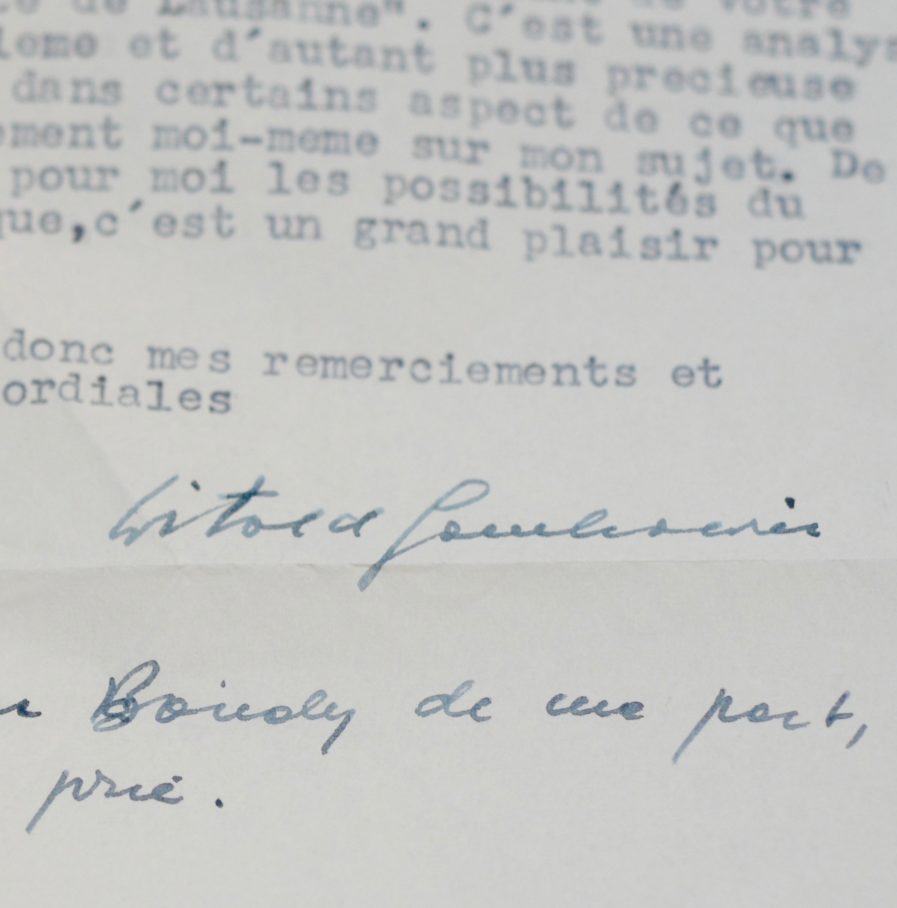 de Lausanne". C´est une analys
leme et d´autant plus precieuse
dans certains aspect de ce que
ement moi-meme sur mon sujet. De
pour moi les possibilités du
que,c´est un grand plaisir pour
donc mes remerciements et
ordiales
Witold Gombrowicz
Bondy de ma part,
prie.